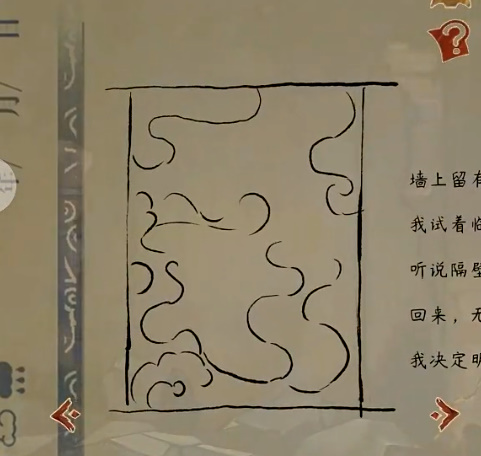 墙上留有
我试着临
听说隔壁
回来，无
我决定明
年/ 月/ 日